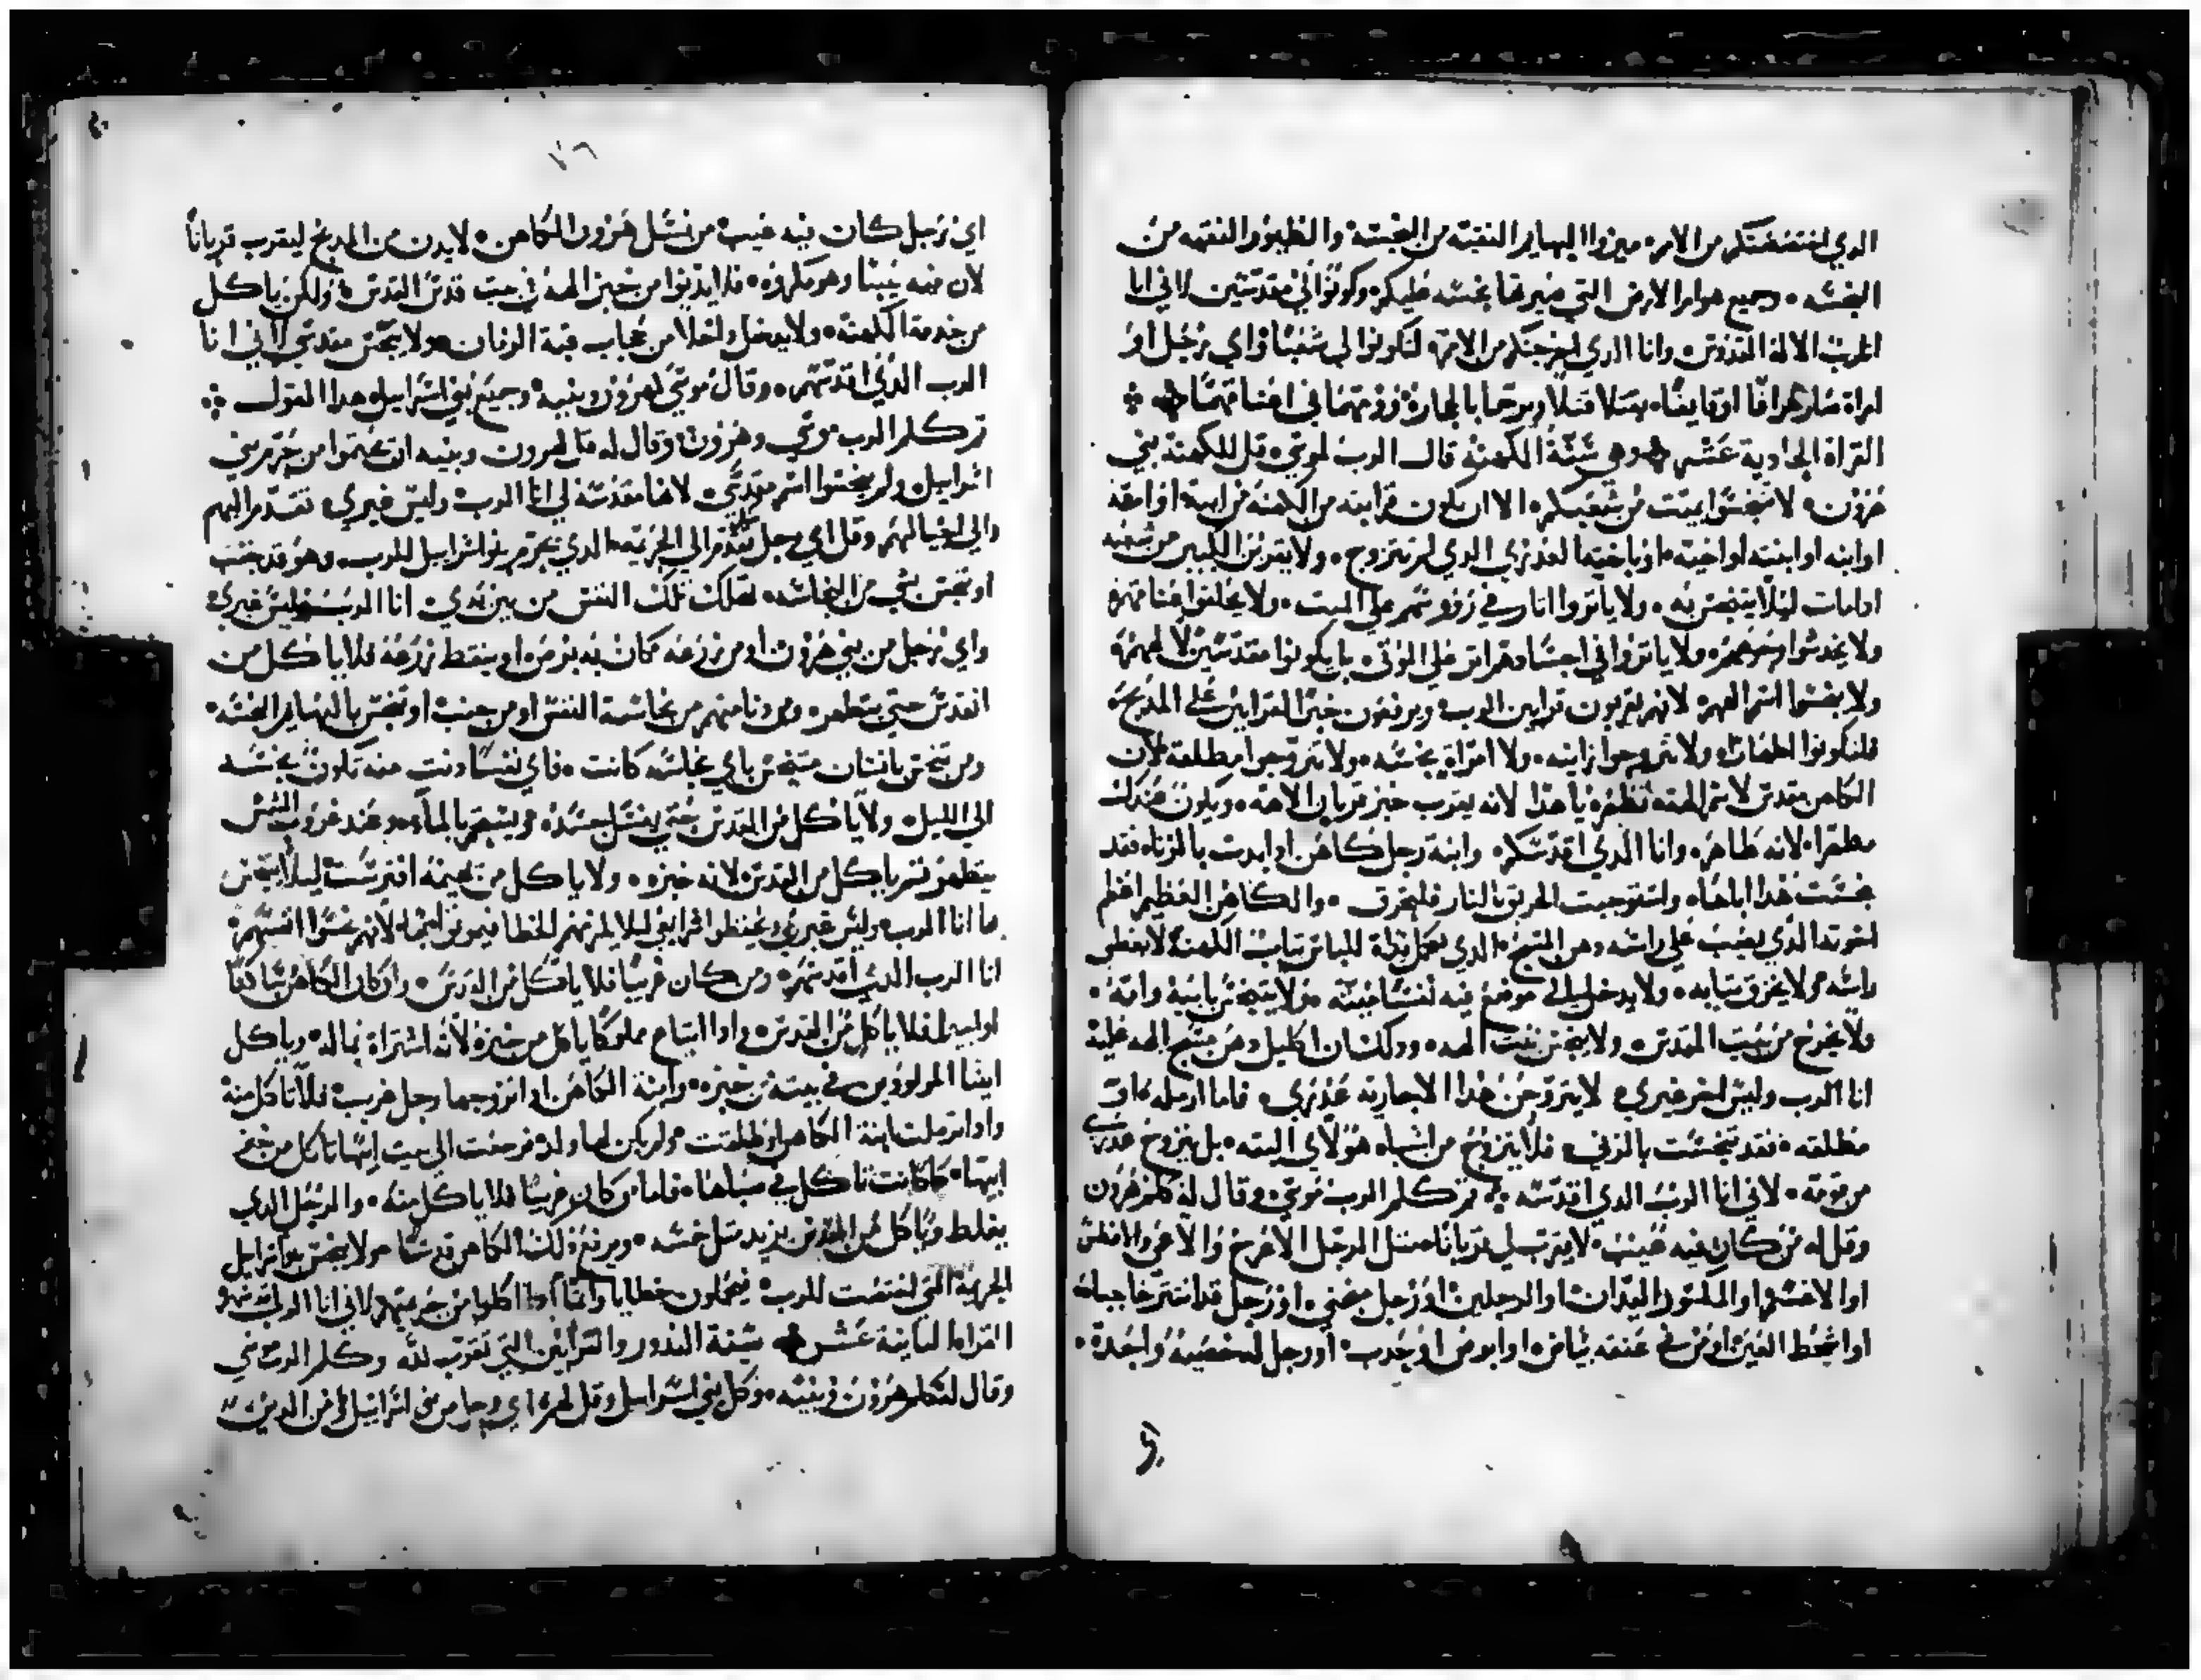 الذي اختصصتكم من الامم ميزوا البهايم النقية من النجسة والطيور النقيه من
النجسه وجميع هوام الارض التي صيرتها نجسه عليكم وكونوا لي مقدسين لاني انا
الرب الاله القدوس وانا الذي اخرجتكم من الامم لتكونوا لي شعبا واي رجل او
امراة صار عرافا او قايفا يقتلا قتلا ويرجما بالحجارة ودمهما في اعناقهما
القراة الحادية عشر وهي سنة الكهنة قال الرب لموسي قل للكهنة بني
هرون لا تنجسوا بميت من شعبكم الا ان يكون قرابته من الكهنة من ابيه او امه
او ابنه او ابنته او اخيه او باخته العذري الذي لم تتزوج ولا يقربن الكبير من شعبه
اذا مات ليلا يتنجس به ولا ياتروا اثار في رووسهم علي الميت ولا يحلقوا لحاهم
ولا يخدشوا وجوههم ولا ياتروا في اجسادهم اثر علي الموتى بل يكونوا مقدسين لالههم
ولا ينجسوا اسم الههم لانهم يقربون قرابين الرب ويرفعون خبز القرابين علي المدبح
فليكونوا اطهارا ولا يتزوجوا زانيه ولا امراة نجسه ولا يتزوجوا مطلقه لان
الكاهن مقدس لاسم الهه تطهره ياهدا لانه يقرب خبز قربان الاهه ويكون عندك
مطهرا لانه طاهر وانا الذي اقدسكم وابنة رجل كاهن اذا بدت بالزناه فقد
نجست هذا اباها واستوجبت الحريق بالنار فلتحرق والكاهن العظيم اعظم
اخوته الذي يصب علي راسه دهن المسح الذي تكمل يداه للباس تياب الكهنة لا يغطي
راسه ولا يخرق تيابه ولا يدخل الي موضع فيه نفسا ميته ولا يتنجس بابيه وامه
ولا يخرج من بيت المقدس ولا ينجس بيت الهه ودلك ان اكليل دهن مسح الهه عليه
انا الرب وليس اخر غيري لا يتزوجن هدا الا بجاريه عذري فاما ارمله او
مطلقه فقد تنجست بالزني فلا يتزوج من اشباه هولاي البته بل يتزوج عذري
من قومه لاني انا الرب الذي اقدسه ثم كلم الرب موسي وقال له كلم هرون
وقل له من كان فيه عيب لا يقرب لي قربانا مثل الرجل الاعرج والاعور والافطس
او الاخشم او المكسور اليدان او الرجلين او رجل منحني او رجل قد انتتر حاجباه
او اشحط العين او من في عنقه بياض او ابرص او اجدب او رجل له خصية واحدة
اي رجل كان فيه عيب من نسل هرون الكاهن لا يدن من المدبح ليقرب قربانا
لان فيه عيبا وهو مكروه فلا يدنوا من خبز الهه في بيت قدس القدس ولكن ياكل
من خدمة الكهنه ولا يدخل داخلا من حجاب قبة الزمان ولا ينجس مقدسي لاني انا
الرب الذي اقدسهم وقال موسي لهرون وبنيه وجميع بني اسراييل هدا القول
تم كلم الرب موسي وهرون وقال له قل لهرون وبنيه ان يحتموا من حرم بني
اسراييل ولا ينجسوا اسم مقدسي لانها مقدسة لي انا الرب وليس غيري تقدم اليهم
والي اجيالهم وقل اي رجل تقدم الي الحرمه الذي يحرم بنو اسراييل للرب وهو قد جنب
او تنجس بشي من النجاسه تهلك تلك النفس من بين يدي انا الرب وليس غيري
واي رجل من بني هرون او من زرعه كان به برص او ينقط زرعه فلا ياكل من
القدس حتي يتطهر ومن دنا منهم من نجاسة النفس او من جنب او تنجس بالبهايم النجسه
ومن تنجس بانسان متنجس باي نجاسه كانت فاي نفسا دنت منه تكون نجسه
الي الليل ولا ياكل من القدس حتي يغسل جسده ويستحم بالماء وعند غروب الشمس
يتطهر تم ياكل من القدس لانه خبزه ولا ياكل من بهيمة افترست ليلا يتنجس
بها انا الرب وليس غيري وليحفظوا شرايعي ليلا يلزمهم الخطا فيموتوا فيها لانهم نجسوا انفسهم
انا الرب الدي اقدسهم ومن كان غريبا فلا ياكل من القدس وان كان الكاهن ساكنا
او اجيرا فلا ياكل من القدس وادا ابتاع مملوكا ياكل من خبزه لانه اشتراه بماله وياكل
ايضا المولودين في بيته من خبزه وابنة الكاهن ادا تزوجها رجل غريب فلا تاكل منه
وادا ترملت ابنة الكاهن او طلقت ولم يكن لها ولد ورجعت الي بيت ابيها تاكل من خبز
ابيها كما كانت تاكل في صباها فاما من كان غريبا فلا ياكل منه والرجل الدي
يغلط وياكل من القدس يزيد متل خمسه ويرفع دلك الكاهن قدسا ولا ينجس بنو اسراييل
الحرمة التي اختصت للرب فيحملون خطايا واتما ادا اكلوا من حرمتهم لاني انا الرب مطهرهم
القراه التانية عشر سنة الندور والقرابين التي تقرب لله وكلم الرب موسي
وقال له كلم هرون وبنيه وكل بني اسراييل وقل لهم اي رجل من بني اسراييل او من الدين